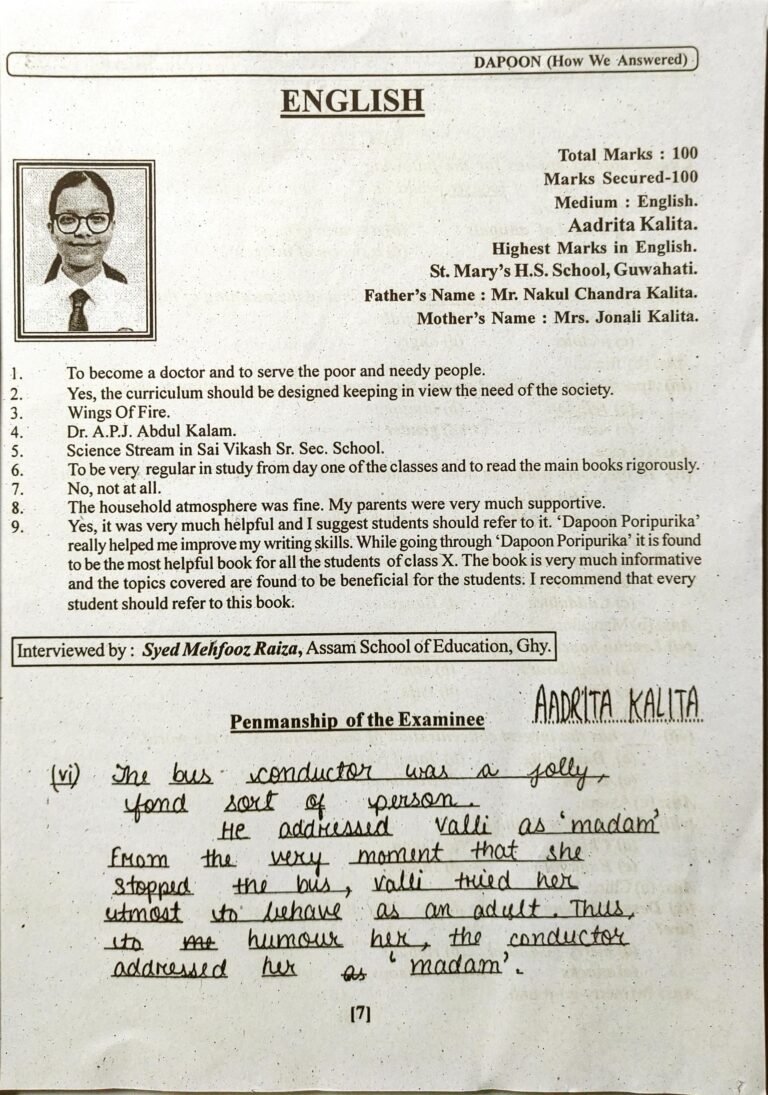 DAPOON (How We Answered)
ENGLISH
Total Marks : 100
Marks Secured-100
Medium : English.
Aadrita Kalita.
Highest Marks in English.
St. Mary's H.S. School, Guwahati.
Father's Name : Mr. Nakul Chandra Kalita.
Mother's Name : Mrs. Jonali Kalita.
1. To become a doctor and to serve the poor and needy people.
2. Yes, the curriculum should be designed keeping in view the need of the society.
3. Wings Of Fire.
4. Dr. A.P.J. Abdul Kalam.
5. Science Stream in Sai Vikash Sr. Sec. School.
6. To be very regular in study from day one of the classes and to read the main books rigorously.
7. No, not at all.
8. The household atmosphere was fine. My parents were very much supportive.
9. Yes, it was very much helpful and I suggest students should refer to it. 'Dapoon Poripurika'
really helped me improve my writing skills. While going through 'Dapoon Poripurika' it is found
to be the most helpful book for all the students of class X. The book is very much informative
and the topics covered are found to be beneficial for the students. I recommend that every
student should refer to this book.
Interviewed by : Syed Mehfooz Raiza, Assam School of Education, Ghy.
AADRITA KALITA
Penmanship of the Examinee
(vi) The bus conductor was a jolly,
fond sort of person.
He addressed Valli as 'madam'
From the very moment that she
stopped the bus, Valli tried her
utmost to behave as an adult. Thus,
to me humour her, the conductor
addressed her as 'madam'.
[7]